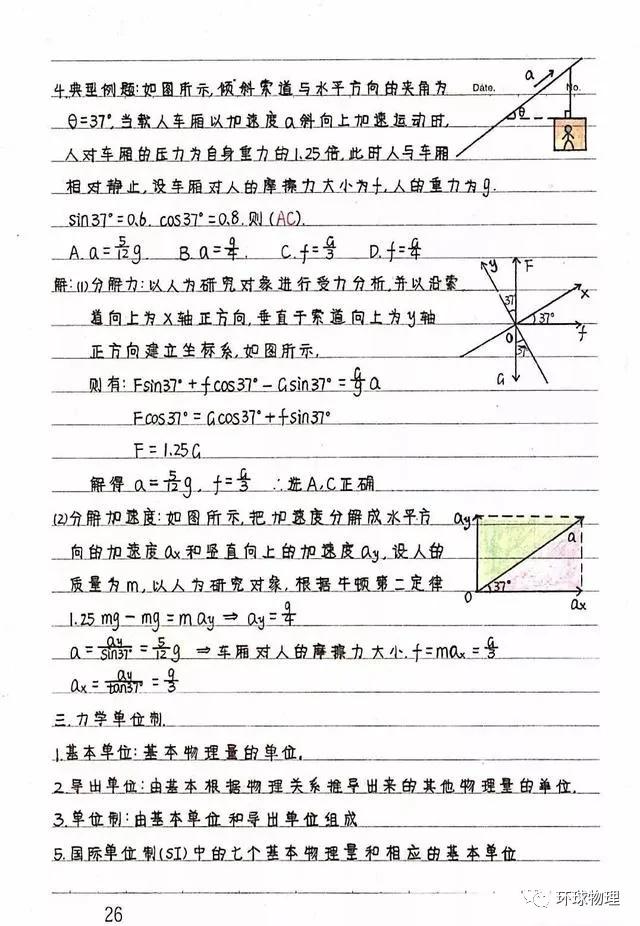 Date.
No.
a
θ
4.典型例题:如图所示,倾斜索道与水平方向的夹角为
θ=37°,当载人车厢以加速度a斜向上加速运动时,
人对车厢的压力为自身重力的1.25倍,此时人与车厢
相对静止,设车厢对人的摩擦力大小为f,人的重力为g.
sin37°=0.6. cos37°=0.8.则(AC).
A.a=5/12g. B.a=g/4. C.f=G/3 D.f=G/4
解:(1)分解力:以人为研究对象进行受力分析,并以沿索
道向上为X轴正方向,垂直于索道向上为y轴
正方向建立坐标系,如图所示.
则有:Fsin37°+fcos37°-Gsin37°=G/g a
Fcos37°=Gcos37°+fsin37°
F=1.25G
解得 a=5/12g, f=G/3 ∴选A,C正确
y
F
x
37°
37°
O
f
37°
G
(2)分解加速度:如图所示,把加速度分解成水平方
向的加速度ax和竖直向上的加速度ay,设人的
质量为m,以人为研究对象,根据牛顿第二定律
1.25mg-mg=may⇒ay=g/4
a=ay/sin37°=5/12g ⇒车厢对人的摩擦力大小.f=max=G/3
ax=ay/tan37°=g/3
ay
a
37°
O
ax
三.力学单位制.
1.基本单位:基本物理量的单位.
2.导出单位:由基本根据物理关系推导出来的其他物理量的单位.
3.单位制:由基本单位和导出单位组成
5.国际单位制(SI)中的七个基本物理量和相应的基本单位
26
环球物理